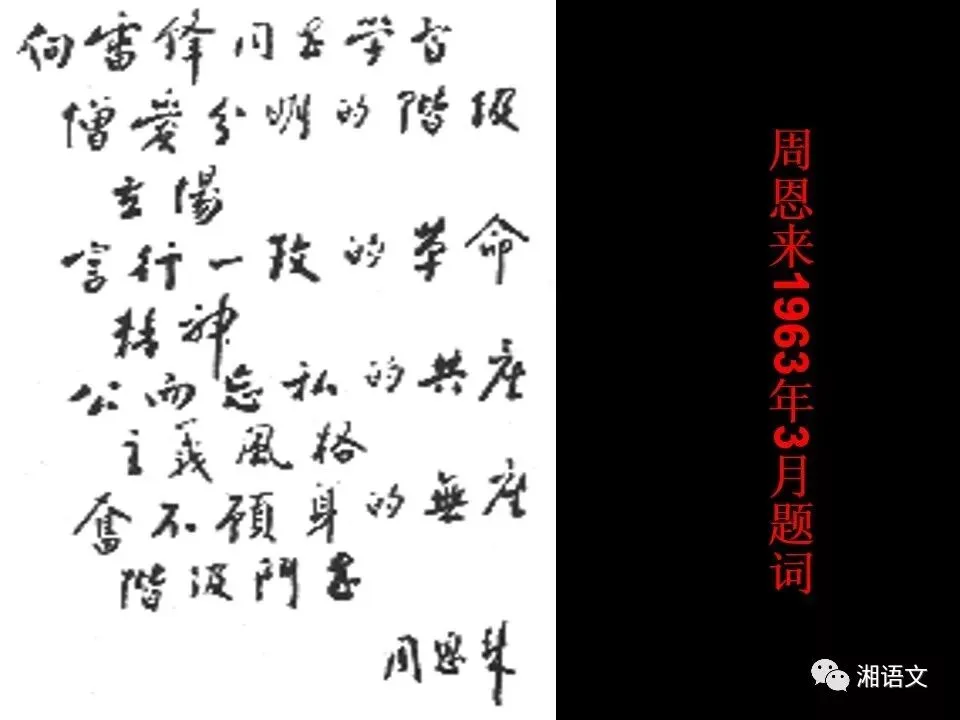 向雷锋同志学習
憎愛分明的階級
立場
言行一致的革命
精神
公而忘私的共产
主義風格
奮不顧身的無产
階級鬥志
周恩来
周恩来1963年3月题词
湘语文